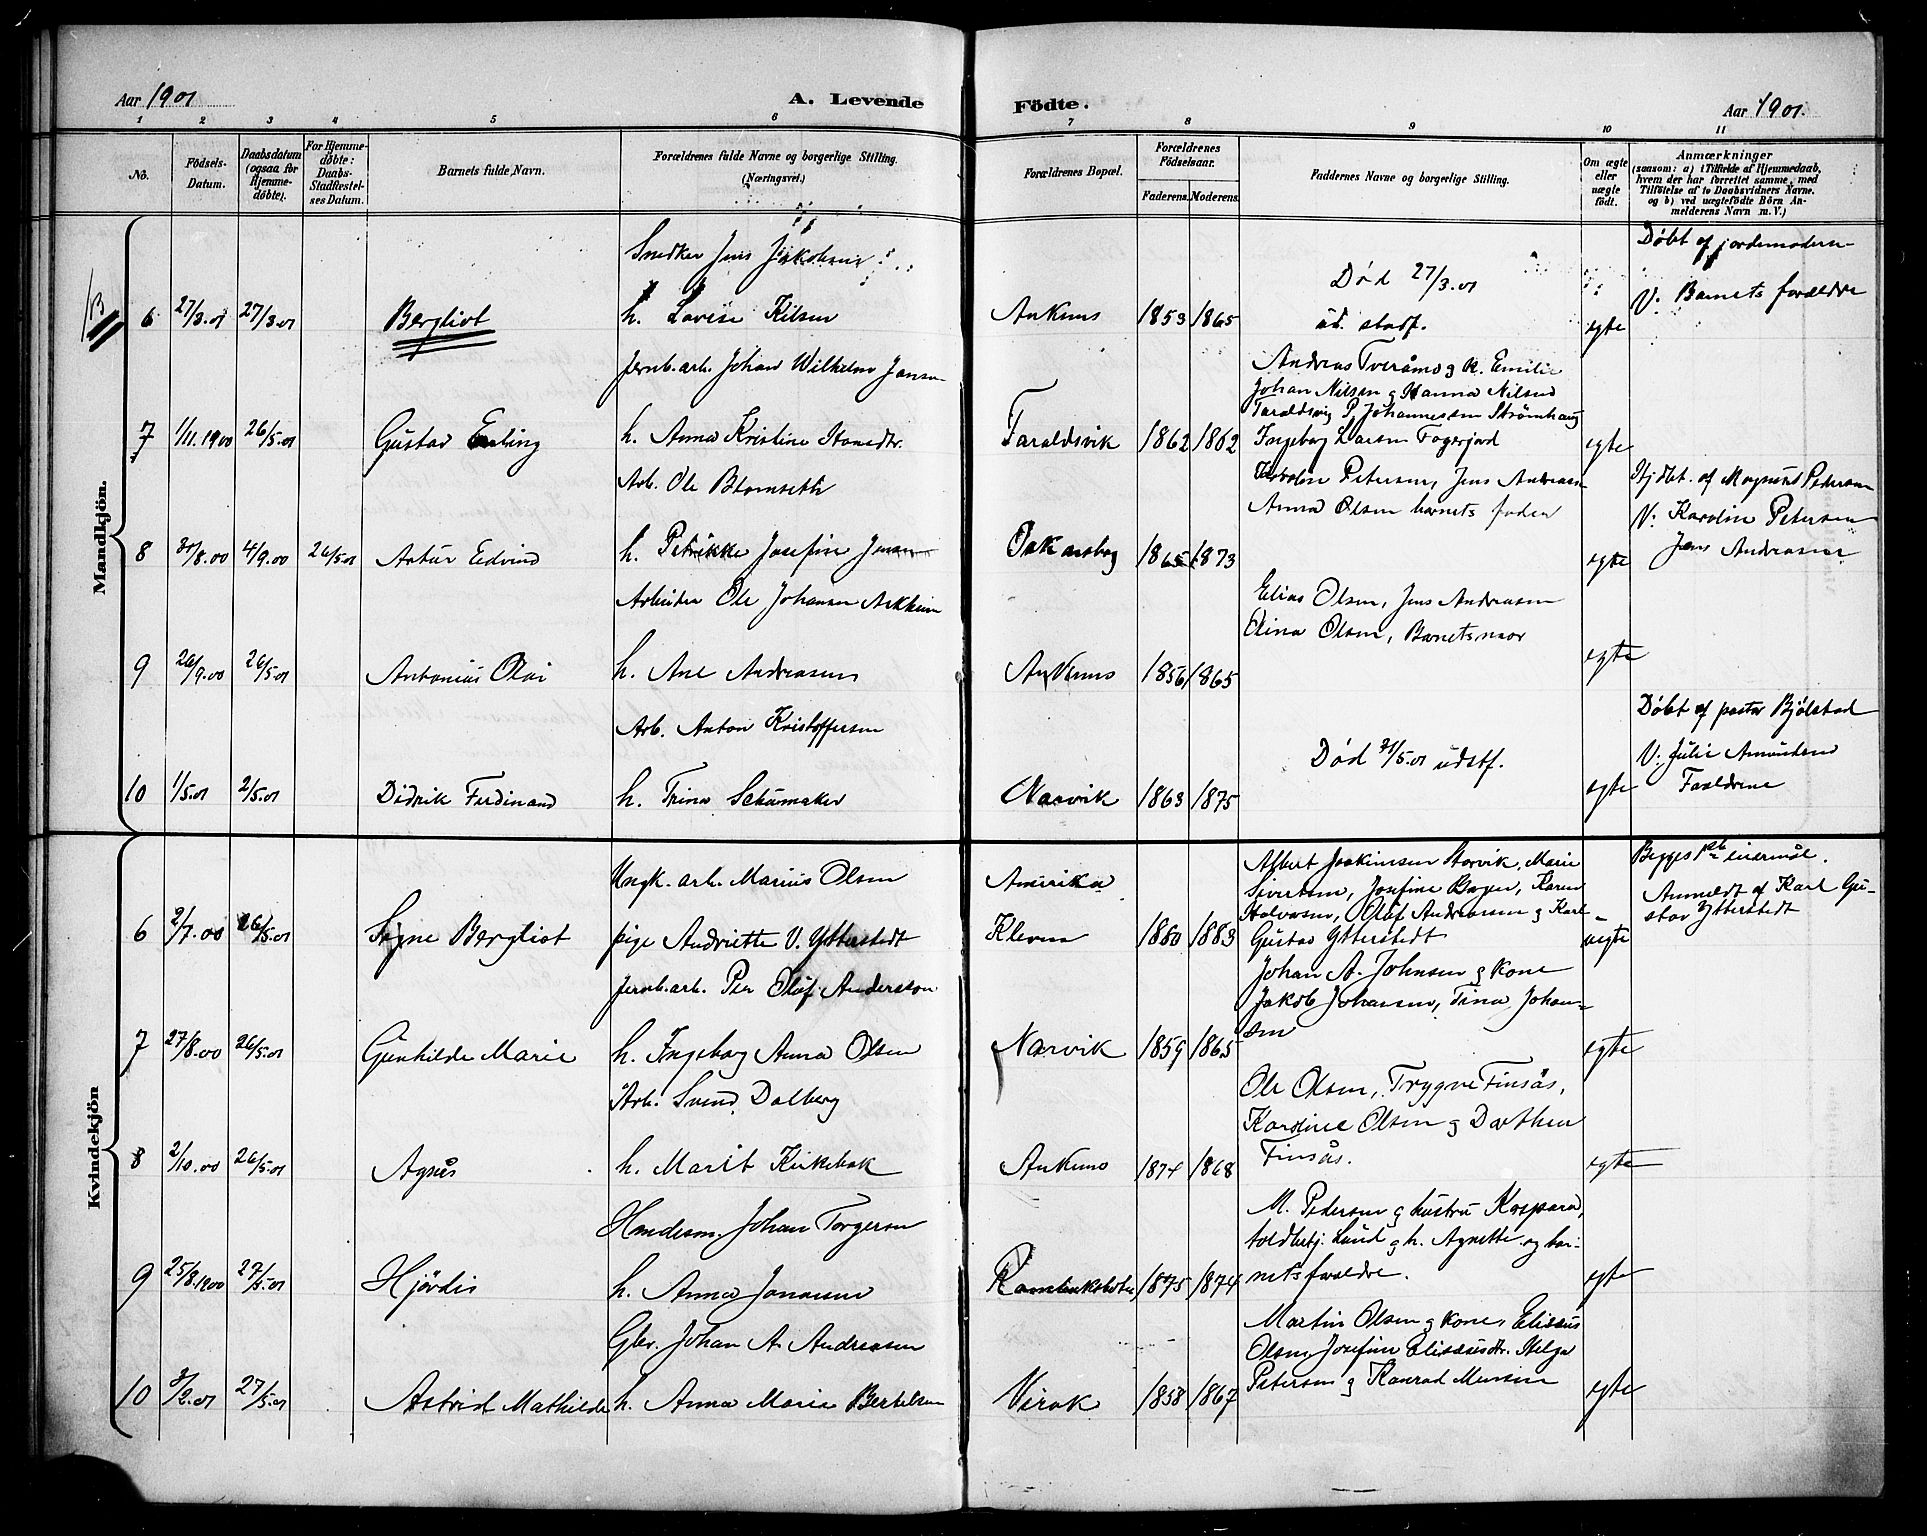 Aar 1901
A. Levende
Födte.
Aar 1901.
1 2 3 4 5 6 7 8 9 10 11
No.
Födsels-Datum.
Daabsdatum (ogsaa for Hjemme-døbte).
For Hjemme-døbte: Daabs-Stadfæstel-ses Datum.
Barnets fulde Navn.
Forældrenes fulde Navne og borgerlige Stilling. (Næringsvei.)
Forældrenes Bopæl.
Forældrenes Födselsaar.
Faderens. Moderens.
Faddernes Navne og borgerlige Stilling.
Om ægte eller uægte födt.
Anmærkninger
(saasom: a) i Tilfælde af Hjemmedaab, hvem der har forrettet samme, med Tilföielse af to Daabsvidners Navne, og b) ved uægtefödte Börn An-melderens Navn m. V.)
Mandkjön.
Snedker Jens Jakobsen
Døbt af jordemoderen
Død 27/3.01
V: Barnets forældre
6 27/3.01 27/3.01 Bergliot h. Lovise Kilsen Ankenes 1853 1865 ud. stadf. egte
Jernb.arb. Johan Wilhelm Jansen
Andreas Tveråmo g k. Emilie
Johan Nilsen g Hanna Nilsen
Taraldsvig P. Johannessen Strömhaug
7 1/11.1900 26/5.01 Gustav Erling h. Anna Kristine Hansdtr. Taraldsvik 1862 1862 Ingeborg Larsen Fagerjord egte
Arb. Ole Blomseth
Karoline Petersen, Jens Andreassen
Anna Olsen barnets fader
Hjdbt. af Magnus Pedersen
V: Karoline Petersen
Jens Andreassen
8 30/8.00 4/9.00 26/5.01 Artur Edvind h. Petrikke Josefine Jensen Oskarsborg 1865 1873 egte
Arbeider Ole Johansen Arkheim
Elias Olsen, Jens Andreasen
Elina Olsen, Barnets moor
9 26/9.00 26/5.01 Antonius Olai h. Ane Andreasen Ankenes 1856 1865 egte
Arb. Anton Kristoffersen
Død 21/5.01 udstf.
Døbt af pastor Bjølstad
V: Julie Amundsen
Forældrene
10 1/5.01 2/5.01 Didrik Ferdinand h. Trina Schumaker Narvik 1863 1875 egte
Kvindekjön
Ungk. arb. Marius Olsen Amerika
Albert Joakimsen Storvik, Marie
Sivertsen, Josefine Bogen, Karen
Halvorsen, Oluf Andreassen g Karl
Begges 1ste leiermål.
Anmeldt af Karl Gu-
stav Ytterstedt
6 2/7.00 26/5.01 Signe Bergliot pige Andriette V. Ytterstedt Kleven 1880 1883 Gustav Ytterstedt uegte
Jernb.arb. Per Olof Andersson
Johan A. Johnsen g kone
Jakob Johansen, Tina Johan-
sen
7 27/8.00 26/5.01 Gunhilde Marie h. Ingeborg Anna Olsen Narvik 1859 1865 egte
Arb. Svend Dalberg
Ole Olsen, Trygve Finsås,
Karoline Olsen g Dorthea
8 2/10.00 26/5.01 Agnes h. Marit Kirkebak Ankenes 1874 1868 Finsås. egte
Handesm. Johan Torgersen
M. Pedersen g hustru Kaspara,
toldbetj. Lund g h. Agnette og bar-
9 25/8.1900 27/5.01 Hjördis h. Anna Jonassen 1875 1874 nets forældre. egte
Gbr. Johan A. Andreasen
Martin Olsen g kone, Elisæus
Olsen, Josefine Elisæusdtr. Helga
10 8/2.01 27/5.01 Astrid Mathilde h. Anna Marie Bertelsen Virak 1858 1867 Petersen g Konrad egte